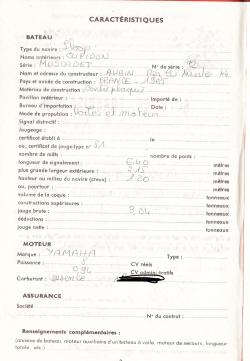 CARACTÉRISTIQUES
BATEAU
Type du navire : Sloop
Noms antérieurs : CUPIDON
Série : MUSCADET N° de série :
Nom et adresse du constructeur : AUBIN Nantes
Pays et année de construction : FRANCE - 1965
Matériau de construction : Contre plaqué
Pavillon antérieur : Importé de :
Bureau d'importation : Date :
Mode de propulsion : Voiles et moteur
Signal distinctif :
Jaugeage :
certificat établi à le
ou, certificat de jauge-type n° 51
nombre de mâts : nombre de ponts :
longueur de signalement : 6,40 mètres
plus grande largeur extérieure : mètres
hauteur au milieu du navire (creux) : 1.20 mètres
ou, pourtour : mètres
volume de la coque : tonneaux
constructions supérieures : tonneaux
jauge brute : 3,04 tonneaux
déductions : tonneaux
jauge nette : tonneaux
MOTEUR
Marque : YAMAHA Type :
Puissance : CV réels
CV administratifs
Carburant : essence
ASSURANCE
Société
N° du contrat :
Renseignements complémentaires :
(annexe du bateau, moteur auxiliaire d'un bateau à voile, moteur de secours, longueur totale, etc.)